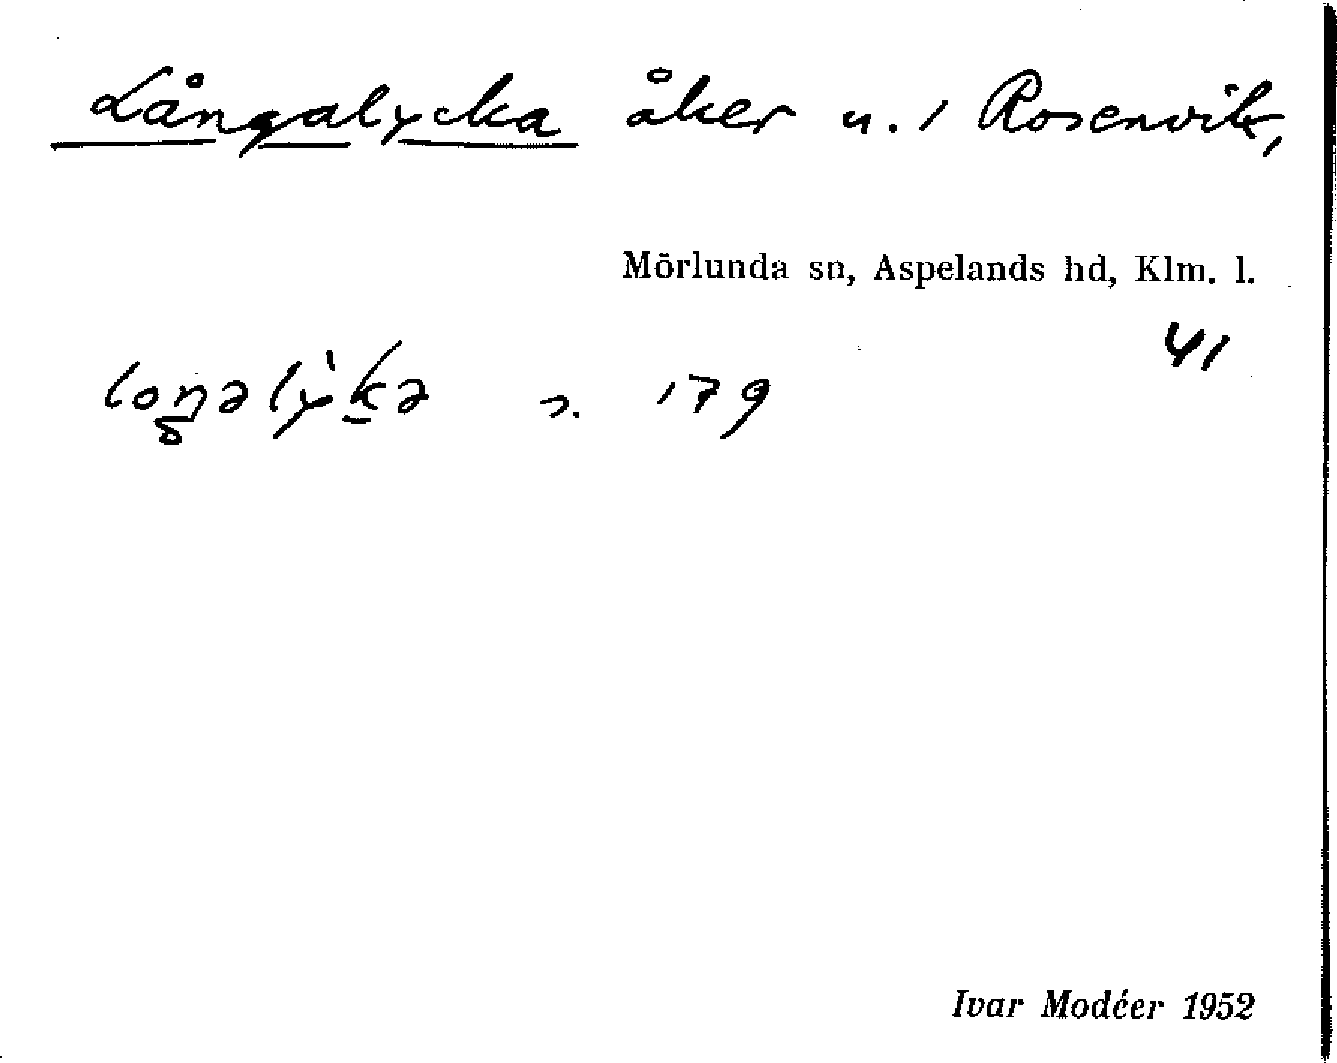 Långalycka åker n. 1 Rosenvik,
Mörlunda sn, Aspelands hd, Klm. l.
41
179
Ivar Modéer 1952